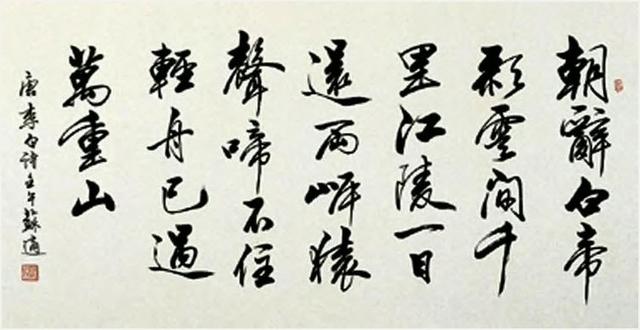 朝辭白帝
彩雲間千
里江陵一日
還兩岸猿
聲啼不住
輕舟已過
萬重山
唐李白詩壬午蘇適